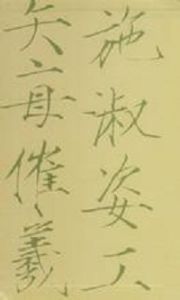 施淑姿工
矢每催羲